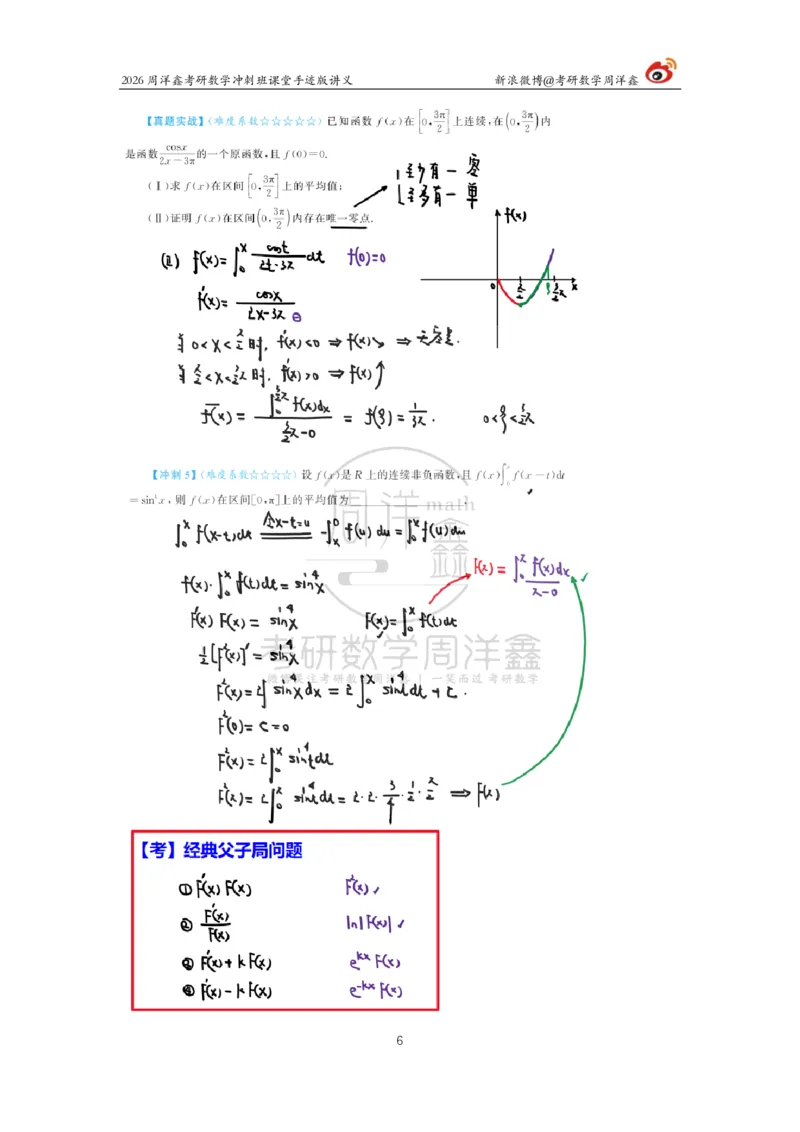 2026 周洋鑫考研数学冲刺班课堂手迹版讲义 新浪微博@考研数学周洋鑫
【真题实战】(难度系数☆☆☆☆☆) 已知函数 f(x) 在 [0, 3π/2] 上连续,在 (0, 3π/2) 内
是函数 cosx/(2x-3π) 的一个原函数,且 f(0)=0.
(Ⅰ)求 f(x)在区间 [0, 3π/2] 上的平均值;
(Ⅱ)证明 f(x)在区间 (0, 3π/2) 内存在唯一零点.
至少有一零
至多有一单
f(x)
0 π/2 ξ 3/2π x
(Ⅱ) f(x)=∫₀ˣ cost/(2t-3π) dt f(0)=0
f'(x)= cosx/(2x-3π) ⊖
当 0<x<π/2 时, f'(x)<0 ⇒ f(x)↘ ⇒ 无零点.
当 π/2<x<3/2π 时, f'(x)>0 ⇒ f(x)↑
f̄(x)= ∫₀^(3/2π) f(x)dx / (3/2π-0) = f(ξ)= 1/3π. 0<ξ<3/2π
【冲刺 5】(难度系数☆☆☆☆) 设 f(x)是 R 上的连续非负函数,且 f(x)∫₀ˣ f(x-t)dt
= sin⁴x, 则 f(x)在区间[0,π]上的平均值为________.
∫₀ˣ f(x-t)dt 令x-t=u -∫ₓ⁰ f(u)du=∫₀ˣ f(u)du
f(x)·∫₀ˣ f(t)dt = sin⁴x
F(π) = ∫₀^π f(x)dx / (π-0) ✓
F'(x) F(x) = sin⁴x F(x)=∫₀ˣ f(t)dt
½[F²(x)]' = sin⁴x
F²(x)=2∫sin⁴x dx = 2∫₀ˣ sin⁴t dt + C.
F²(0)= C=0
F²(x)=2∫₀ˣ sin⁴t dt
F²(π)=2∫₀^π sin⁴t dt = 2·2·3/4·1/2·π/2 ⇒ F(π)
周洋鑫 math
考研数学周洋鑫
微博关注考研数学周洋鑫 | 一笑而过 考研数学
【考】经典父子局问题
① F'(x) F(x) F²(x) ✓
② F'(x)/F(x) ln|F(x)| ✓
③ F'(x)+kF(x) e^(kx) F(x)
④ F'(x)-kF(x) e^(-kx) F(x)
6